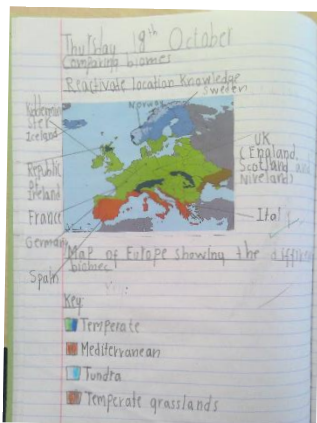 Thursday 18th October
Comparing biomes
Reactivate location knowledge
Norway
Sweden
Iceland
UK
(England,
Scotland and
N Ireland)
Republic
of
Ireland
France
Italy
Germany
Spain
Map of Europe showing the different
biomes
Key
Temperate
Mediterranean
Tundra
Temperate grasslands